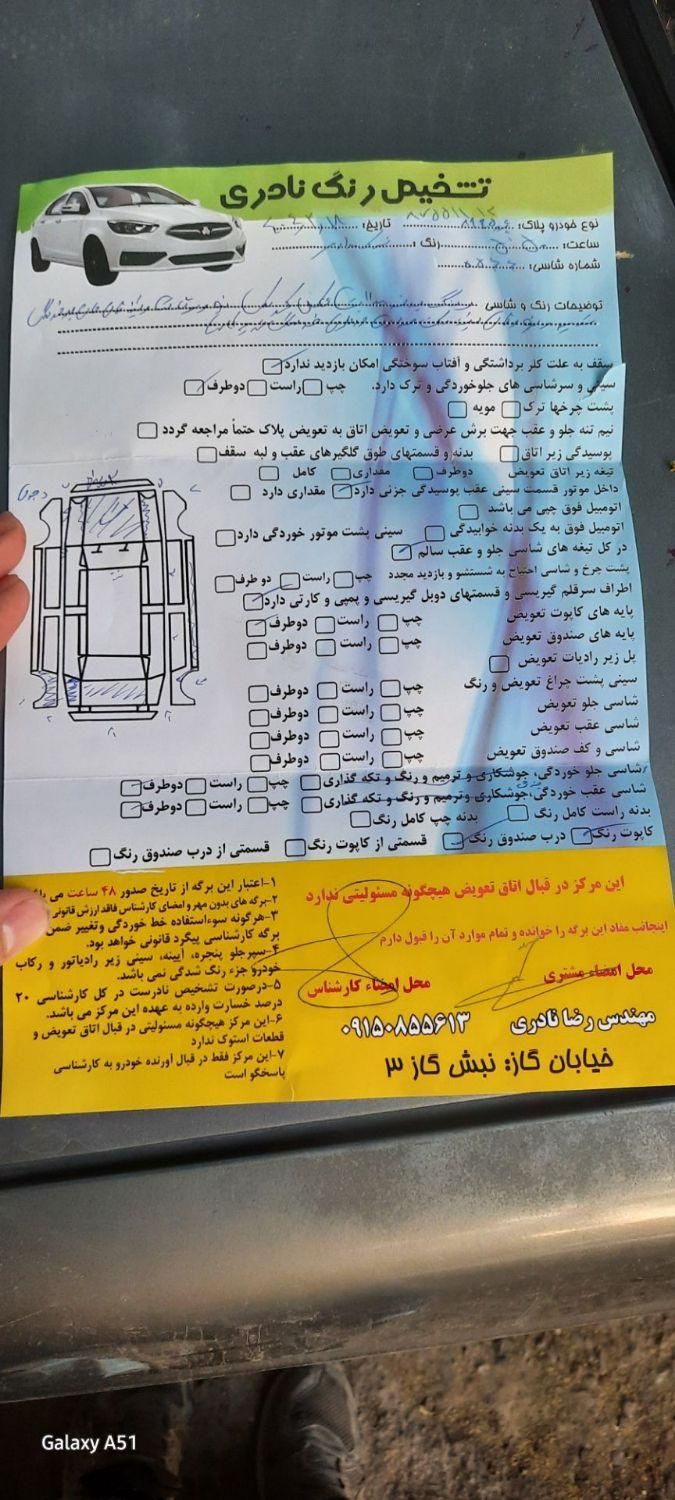 تشخیص رنگ نادری
نوع خودرو پلاک: تاریخ:
ساعت: رنگ:
شماره شاسی:
توضیحات رنگ و شاسی
سقف به علت کلر برداشتگی و آفتاب سوختگی امکان بازدید ندارد
سینی و سرشاسی های جلوخوردگی و ترک دارد. چپ راست دوطرف
پشت چرخها ترک مویه
نیم تنه جلو و عقب جهت برش عرضی و تعویض اتاق به تعویض پلاک حتماً مراجعه گردد
پوسیدگی زیر اتاق بدنه و قسمتهای طوق گلگیرهای عقب و لبه سقف
تیغه زیر اتاق تعویض دوطرف مقداری کامل
داخل موتور قسمت سینی عقب پوسیدگی جزئی دارد مقداری دارد
اتومبیل فوق چپی می باشد
اتومبیل فوق به یک بدنه خوابیدگی سینی پشت موتور خوردگی دارد
در کل تیغه های شاسی جلو و عقب سالم
پشت چرخ و شاسی احتیاج به شستشو و بازدید مجدد چپ راست دو طرف
اطراف سرقلم گیریسی و قسمتهای دوبل گیریسی و پمپی و کارتی دارد
پایه های کاپوت تعویض چپ راست دوطرف
پایه های صندوق تعویض چپ راست دوطرف
پل زیر رادیات تعویض
سینی پشت چراغ تعویض و رنگ چپ راست دوطرف
شاسی جلو تعویض چپ راست دوطرف
شاسی عقب تعویض چپ راست دوطرف
شاسی و کف صندوق تعویض چپ راست دوطرف
شاسی جلو خوردگی، جوشکاری و ترمیم و رنگ و تکه گذاری چپ راست دوطرف
شاسی عقب خوردگی، جوشکاری وترمیم و رنگ و تکه گذاری چپ راست دوطرف
بدنه راست کامل رنگ بدنه چپ کامل رنگ
کاپوت رنگ درب صندوق رنگ قسمتی از کاپوت رنگ قسمتی از درب صندوق رنگ
این مرکز در قبال اتاق تعویض هیچگونه مسئولیتی ندارد
اینجانب مفاد این برگه را خوانده و تمام موارد آن را قبول دارم
محل امضاء مشتری محل امضاء کارشناس
مهندس رضا نادری ۰۹۱۵۰۸۵۵۶۱۳
خیابان گاز: نبش گاز ۳
۱-اعتبار این برگه از تاریخ صدور ۴۸ ساعت می
۲-برگه های بدون مهر و امضای کارشناس فاقد ارزش قانونی
۳-هرگونه سوءاستفاده خط خوردگی وتغییر ضمن
برگه کارشناسی پیگرد قانونی خواهد بود.
۴-سپرجلو پنجره، آیینه، سینی زیر رادیاتور و رکاب
خودرو جزء رنگ شدگی نمی باشد.
۵-درصورت تشخیص نادرست در کل کارشناسی ۲۰
درصد خسارت وارده به عهده این مرکز می باشد.
۶-این مرکز هیچگونه مسئولیتی در قبال اتاق تعویض و
قطعات استوک ندارد
۷-این مرکز فقط در قبال آورنده خودرو به کارشناسی
پاسخگو است
Galaxy A51